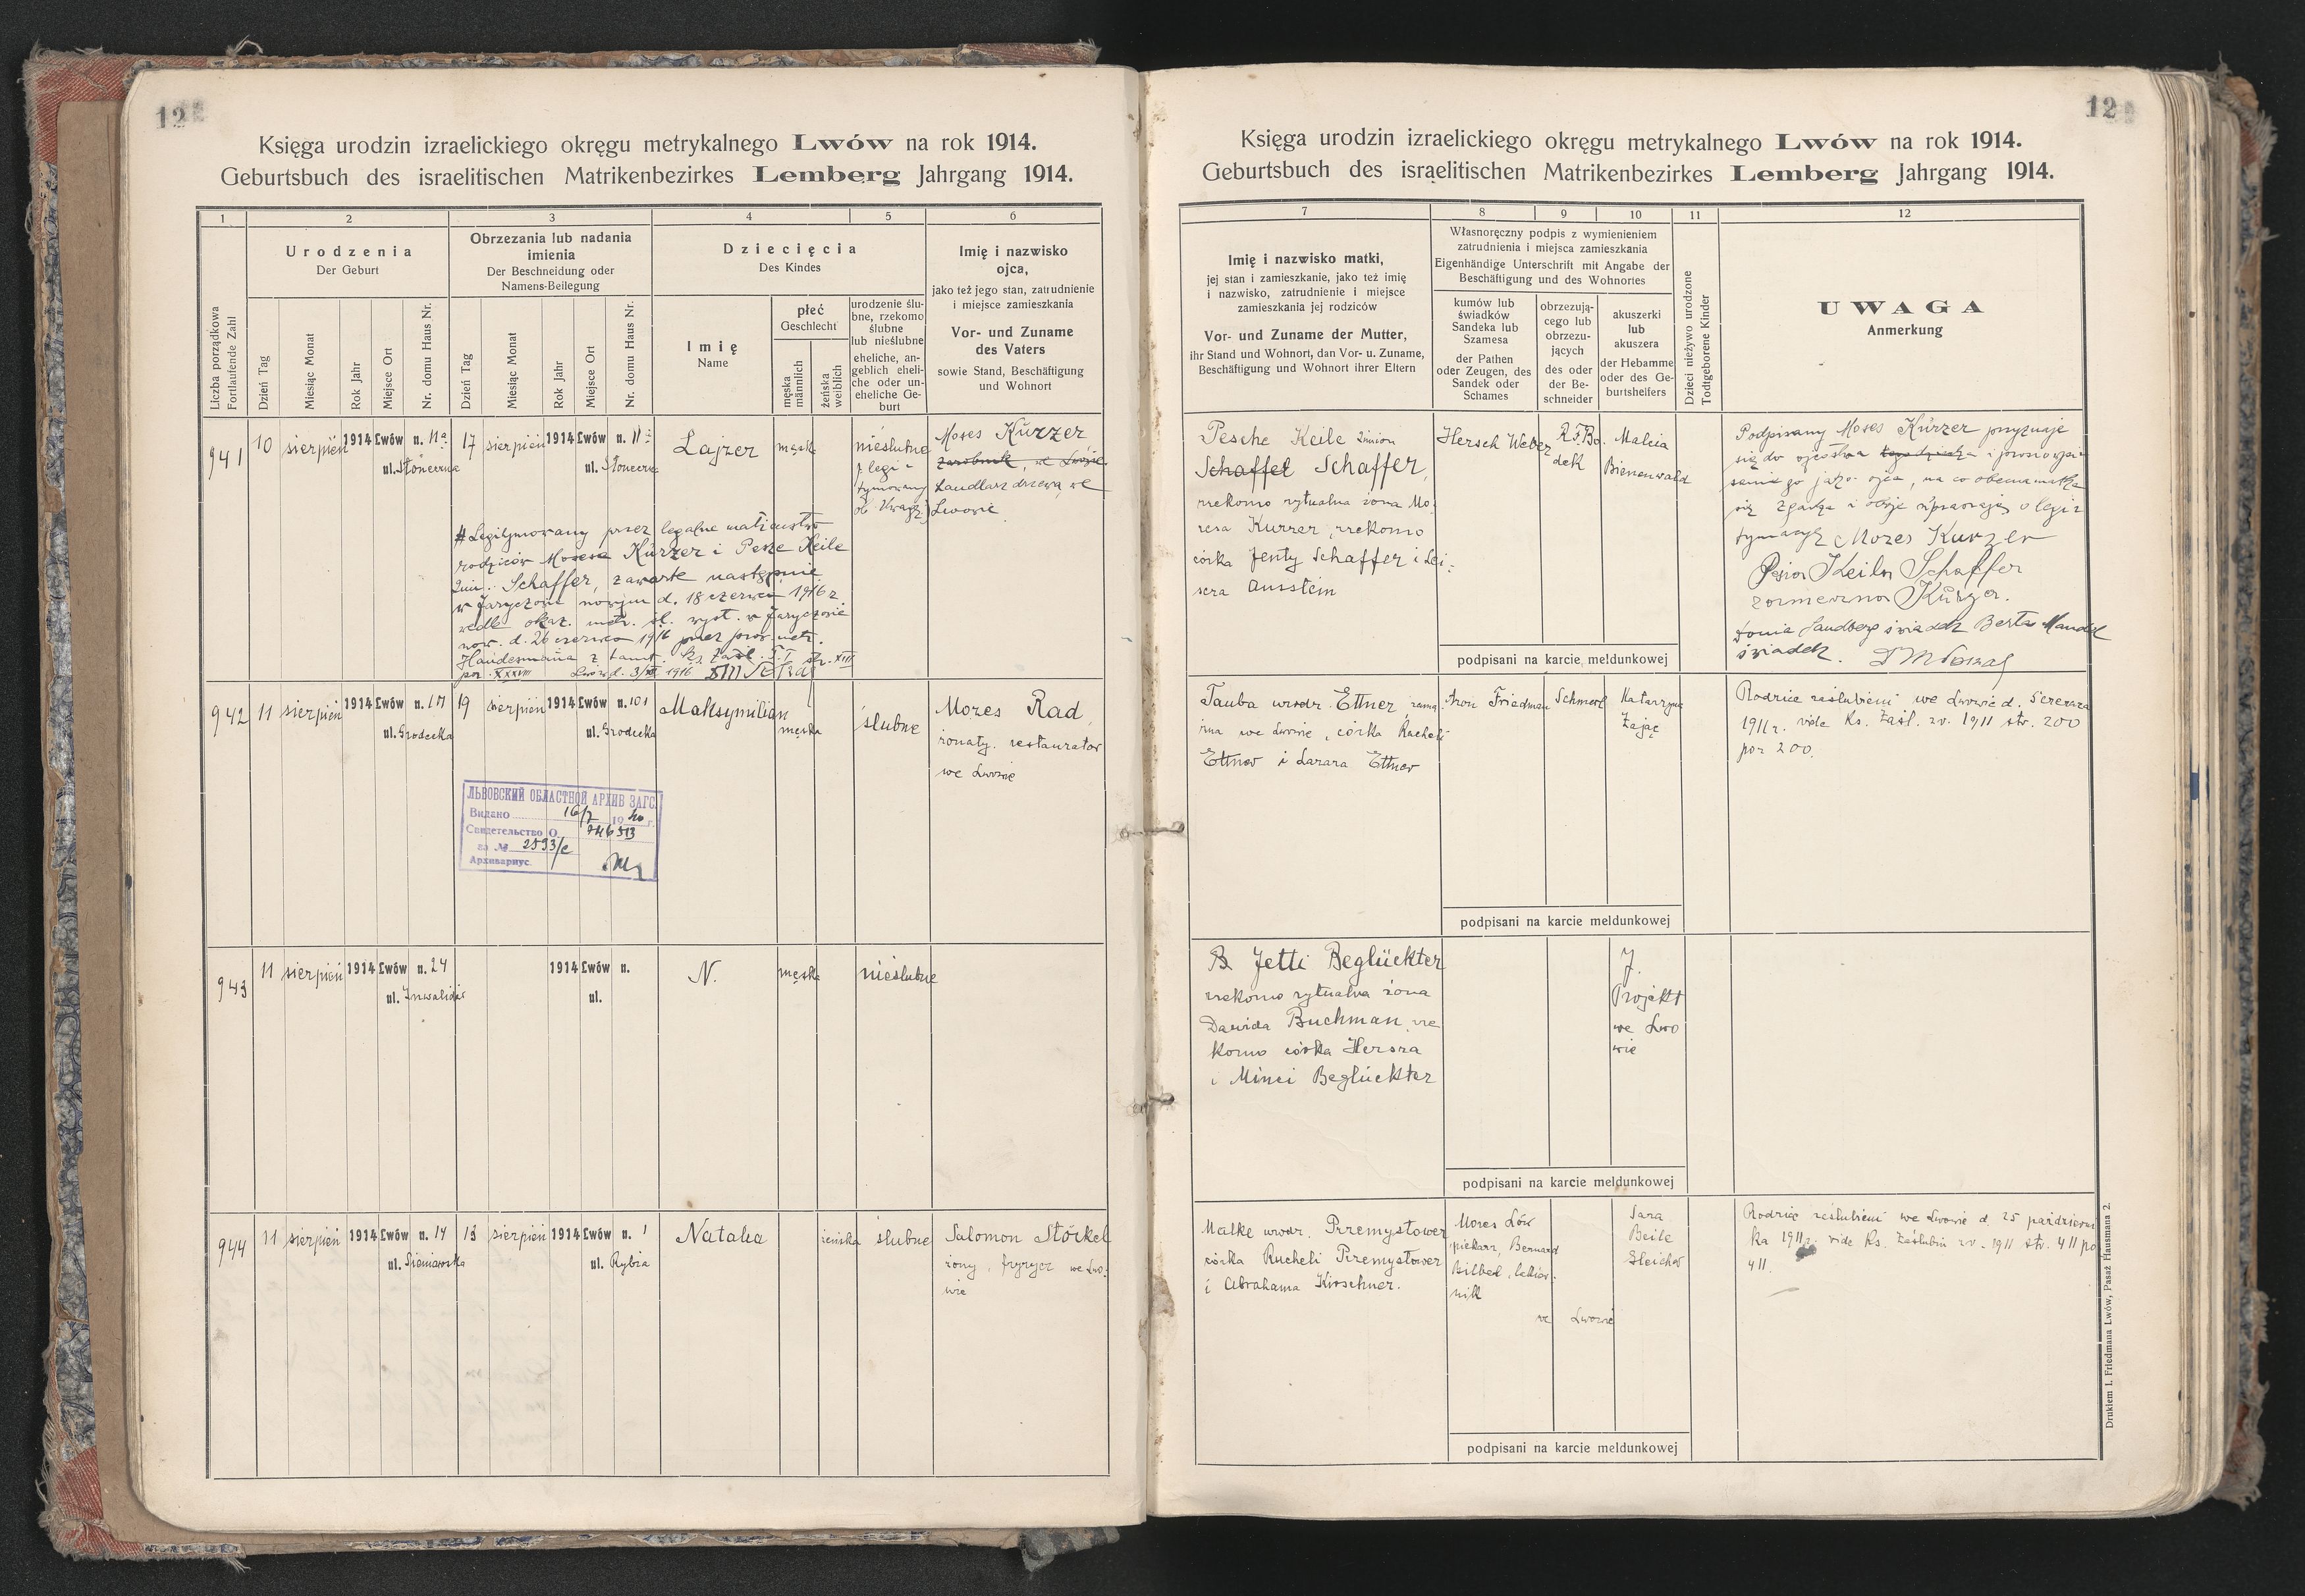 12
Księga urodzin izraelickiego okręgu metrykalnego Lwów na rok 1914.
Geburtsbuch des israelitischen Matrikenbezirkes Lemberg Jahrgang 1914.
1 2 3 4 5 6
Liczba porządkowa
Fortlaufende Zahl
Urodzenia
Der Geburt
Dzień Tag
Miesiąc Monat
Rok Jahr
Miejsce Ort
Nr. domu Haus Nr.
Obrzezania lub nadania
imienia
Der Beschneidung oder
Namens-Beilegung
Dzień Tag
Miesiąc Monat
Rok Jahr
Miejsce Ort
Nr. domu Haus Nr.
Dziecięcia
Des Kindes
Imię
Name
płeć
Geschlecht
męska
männlich
żeńska
weiblich
urodzenie ślu-
bne, rzekomo
ślubne
lub nieślubne
eheliche, an-
geblich eheli-
che oder un-
eheliche Ge-
burt
Imię i nazwisko
ojca,
jako też jego stan, zatrudnienie
i miejsce zamieszkania
Vor- und Zuname
des Vaters
sowie Stand, Beschäftigung
und Wohnort
941 10 sierpień 1914 Lwów n. 11a 17 sierpień 1914 Lwów n. 11a Lajzer męsk nieślubne
ul. Słoneczna ul. Słoneczna
legi-
tymowany
ob. Uwagę
Moses Kürzer
zarobnik, we Lwowie
handlarz drzewa we
Lwowie
# Legitymowany przez legalne małżeństwo
rodziców Mosesa Kürzer i Pesze Keile
2im.: Schaffer, zawarte następnie
w Jaryczowie nowym d. 18 czerwca 1916 r.
wedle okaz. metr. śl. wyst. w Jaryczowie
now. d. 26 czerwca 1916 przez prow. metr.
Handesmana z tamt. ks. zaśl. T. I str. XIII
poz. XXXVIII Lwów d. 1916
942 11 sierpień 1914 Lwów n. 17 19 sierpień 1914 Lwów n. 101 Maksymilian męska ślubne
ul. Grodecka ul. Grodecka
Mozes Rad,
żonaty, restaurator
we Lwowie
ЛЬВОВСКИЙ ОБЛАСТНОЙ АРХИВ ЗАГС.
Видано 16/7 19 г.
Свидетельство О
за № 2593/с
Архивариус
943 11 sierpień 1914 Lwów n. 24 1914 Lwów n. N. męska nieślubne
ul. Inwalidów ul.
944 11 sierpień 1914 Lwów n. 14 13 sierpień 1914 Lwów n. 1 Natalia żeńska ślubne
ul. Sieniawska ul. Rybia
Salomon Störkel
żony, fryzyer we Lwo-
wie
12
Księga urodzin izraelickiego okręgu metrykalnego Lwów na rok 1914.
Geburtsbuch des israelitischen Matrikenbezirkes Lemberg Jahrgang 1914.
7 8 9 10 11 12
Imię i nazwisko matki,
jej stan i zamieszkanie, jako też imię
i nazwisko, zatrudnienie i miejsce
zamieszkania jej rodziców
Vor- und Zuname der Mutter,
ihr Stand und Wohnort, dan Vor- u. Zuname,
Beschäftigung und Wohnort ihrer Eltern
Własnoręczny podpis z wymienieniem
zatrudnienia i miejsca zamieszkania
Eigenhändige Unterschrift mit Angabe der
Beschäftigung und des Wohnortes
kumów lub
świadków
Sandeka lub
Szamesa
der Pathen
oder Zeugen, des
Sandek oder
Schames
obrzezują-
cego lub
obrzezu-
jących
des oder
der Be-
schneider
akuszerki
lub
akuszera
der Hebamme
oder des Ge-
burtshelfers
Dzieci nieżywo urodzone
Todtgeborene Kinder
UWAGA
Anmerkung
Pesche Keile 2imion
Schaffel Schaffer,
rzekomo rytualna żona Mo-
zesa Kurzer, rzekomo
córka Jenty Schaffer i Lei-
sera Ausstein
Hersch Weber
R. F. Bo-
dek
Malcia
Bienenwald
podpisani na karcie meldunkowej
Podpisany Moses Kürzer przyznaje
się do ojcostwa i prosi o wpi-
sanie go jako ojca, na co obecna matka
się zgadza i oboje upraszają o legi-
tymacyę Mozes Kurzer
Pesia Keila Schaffer
zamężna Kürzer.
Sonia Landberg świadek Berta Mandel
świadek.
Tauba urodz. Ettner, zamę-
żna we Lwowie, córka Racheli
Ettner i Lazara Ettner
Aron Friedman
Schmorl
Katarzyna
Zając
podpisani na karcie meldunkowej
Rodzice zaślubieni we Lwowie d. 5 czerwca
1911 r. vide Ks. Zaśl. z r. 1911 str. 200
poz 200.
B. Jetti Beglückter
rzekomo rytualna żona
Dawida Buchman, rze
komo córka Hersza
i Minci Beglückter
J.
Projekt
we Lwo
wie
podpisani na karcie meldunkowej
Malke urodz. Przemysłower
córka Rucheli Przemysłower
i Abrahama Kirschner.
Mozes Löw
piekarz, Bernard
Bilbel, lekier-
nik
we Lwowie
Sara
Beile
Gleicher
podpisani na karcie meldunkowej
Rodzice zaślubieni we Lwowie d. 25 październi
ka 1911 r. vide Ks. Zaślubin z r. 1911 str. 411 po
411.
Drukiem I. Friedmana Lwów, Pasaż Hausmana 2.